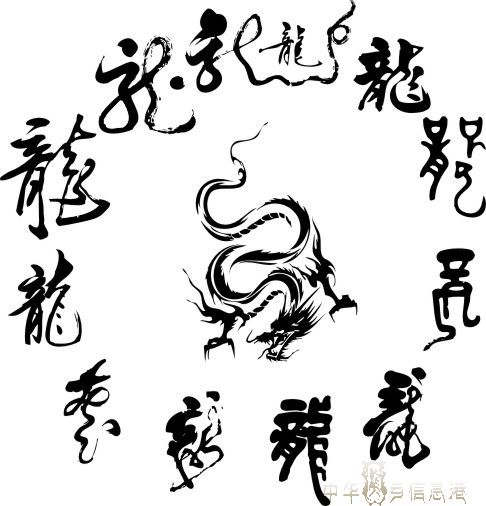 龍
龍
龍
龍
龍
龍
龍
龍
龍
龍
龍
龍
中华乡信息港